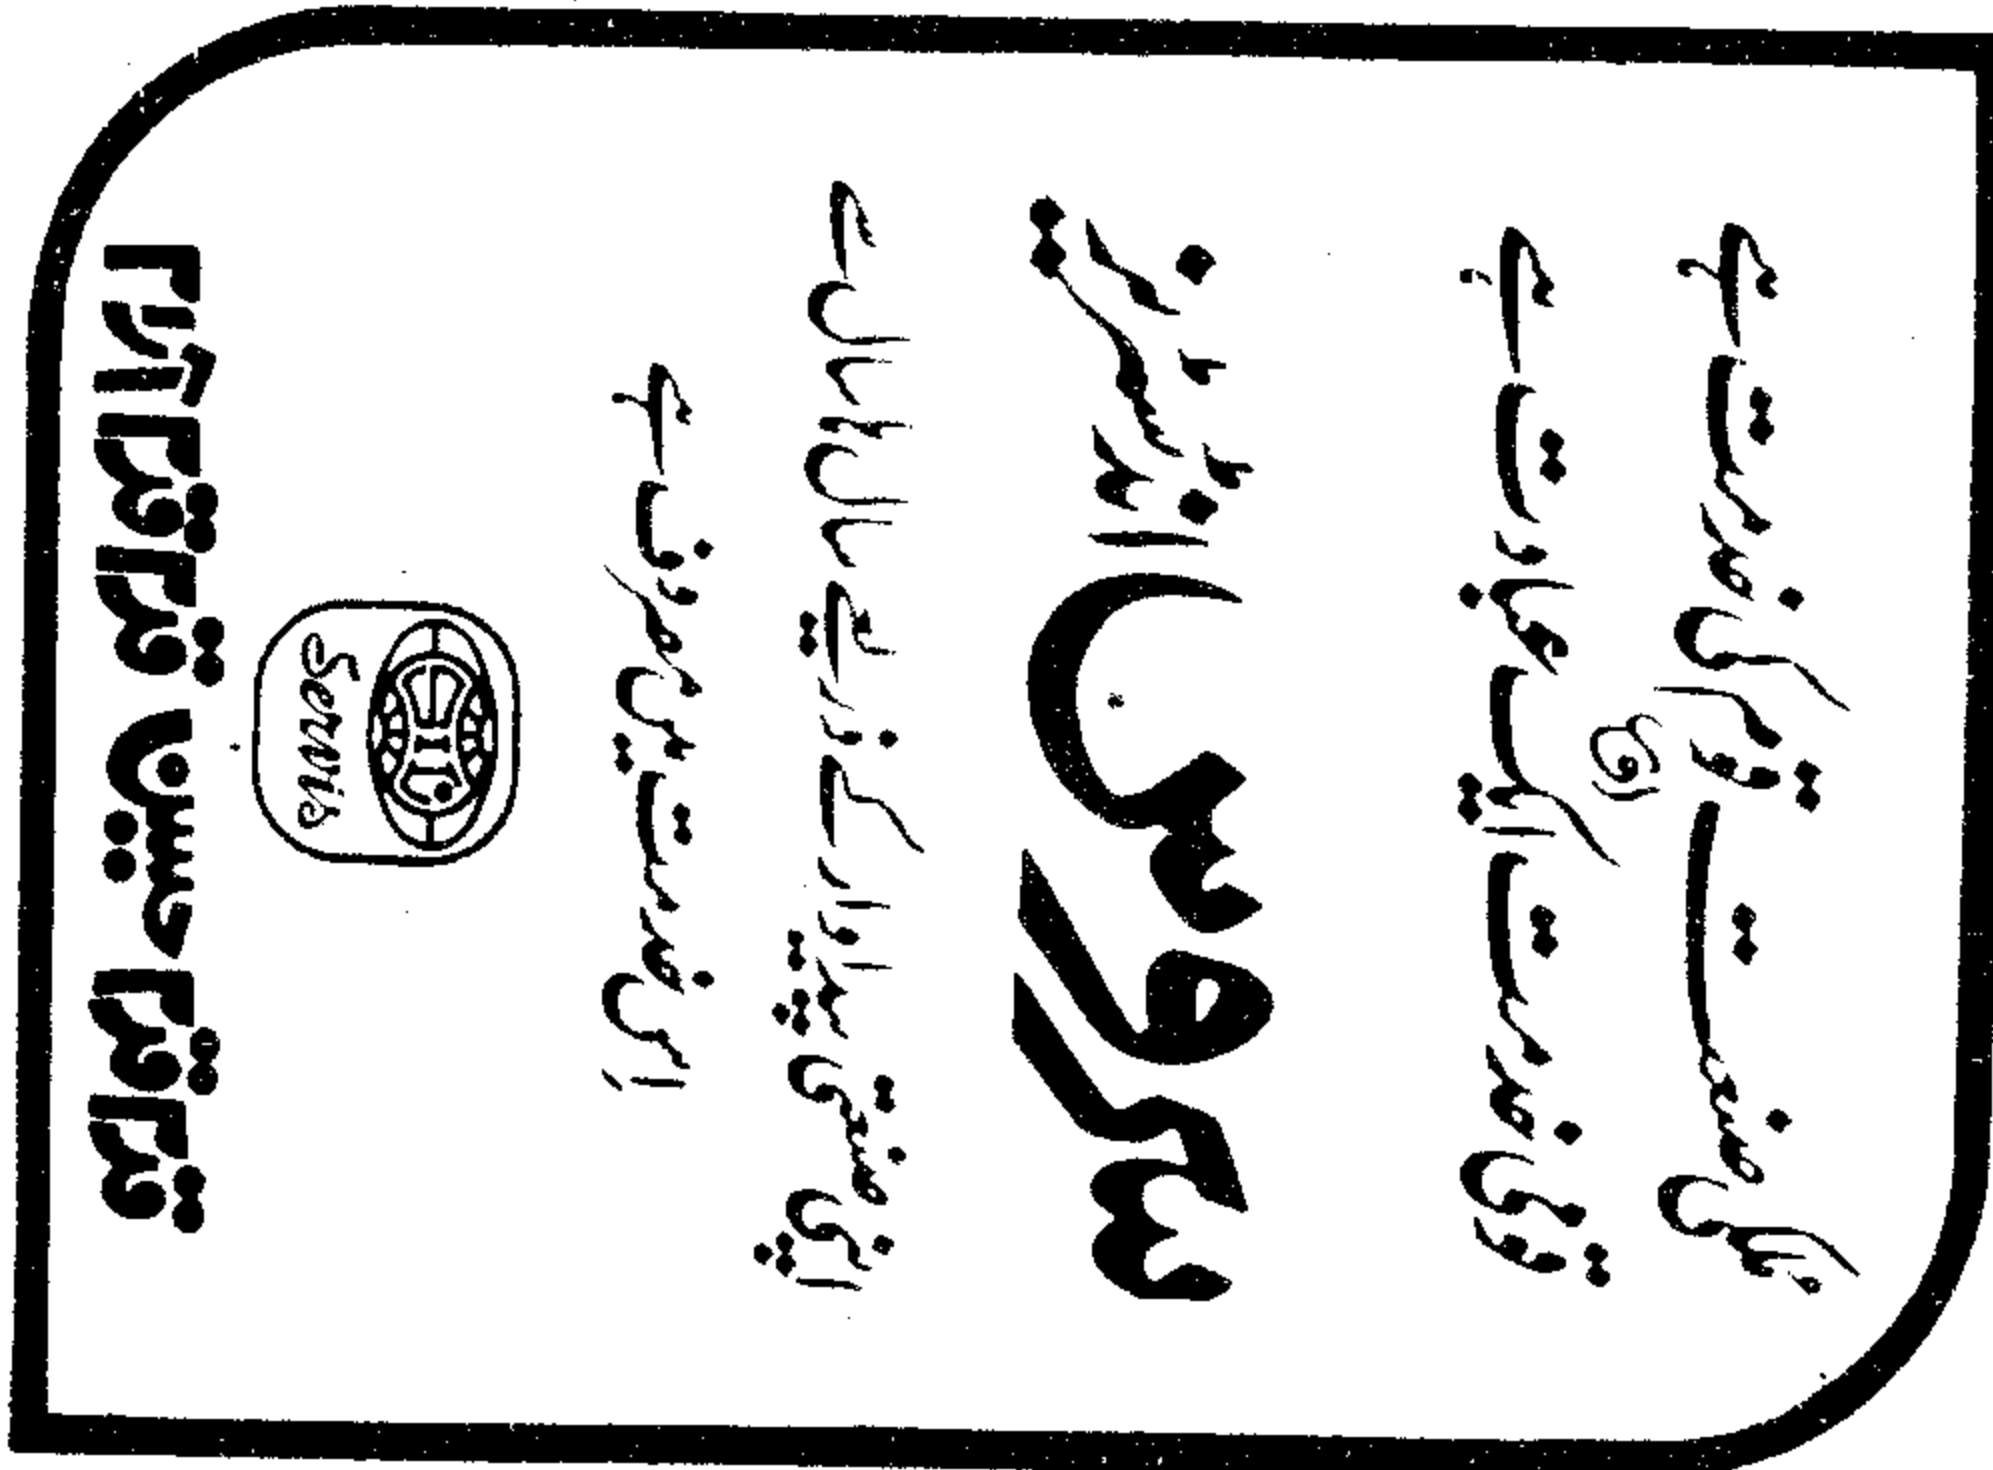 ملکی صنعت قوم کی خدمت ہے
اور
قومی خدمت ایک عبادت ہے
سروس انڈسٹریز
اپنی صنعتی پیداوار کے ذریعے سال ہا سال سے
اس خدمت میں مصروف ہے
Servis
قدم قدم حسین قدم قدم آرام